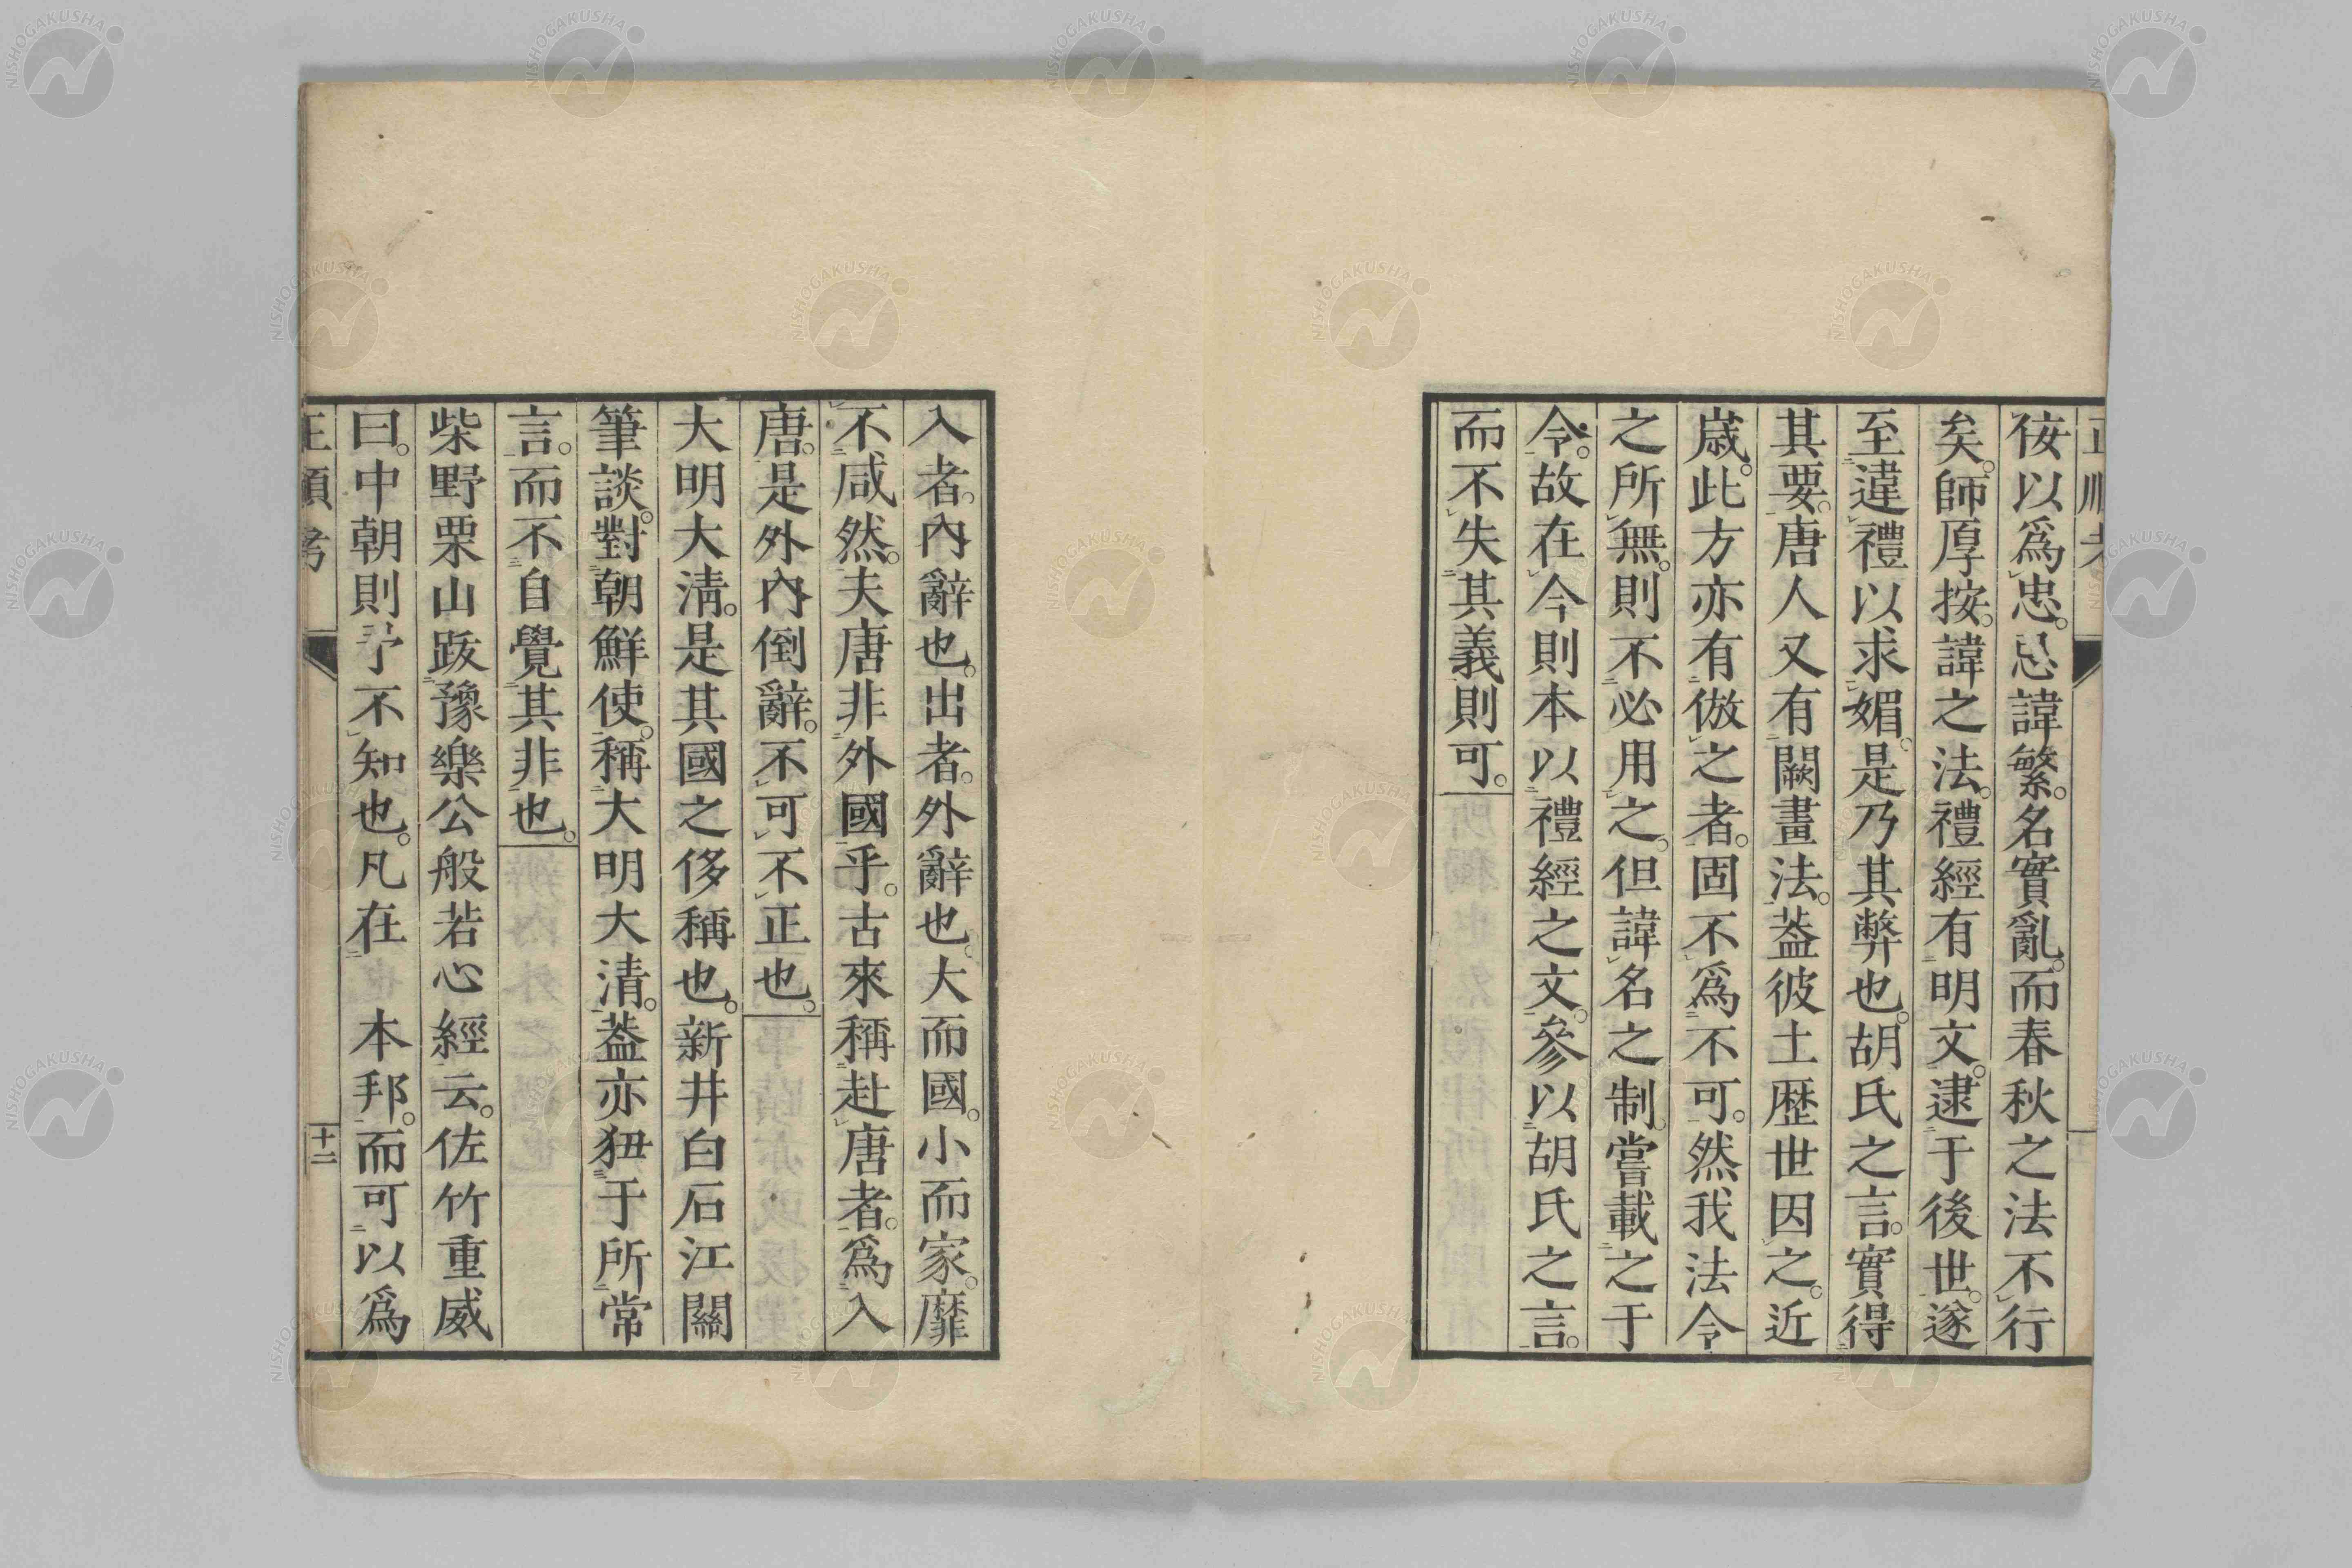 佞以爲忠。忌諱繁。名實亂。而春秋之法不行
矣。師厚按。諱之法。禮經有明文。逮于後世。遂
至違禮以求媚。是乃其弊也。胡氏之言。實得
其要。唐人又有闕畫法。葢彼土歷世因之。近
歲。此方亦有倣之者。固不爲不可。然我法令
之所無。則不必用之。但諱名之制。嘗載之于
令。故在今則本以禮經之文。參以胡氏之言。
而不失其義則可。
入者。內辭也。出者。外辭也。大而國。小而家。靡
不咸然。夫唐非外國乎。古來稱赴唐者。爲入
唐。是外內倒辭。不可不正也。
大明大淸。是其國之侈稱也。新井白石江關
筆談。對朝鮮使。稱大明大清。葢亦狃于所常
言。而不自覺其非也。
柴野栗山跋豫樂公般若心經云。佐竹重威
曰。中朝則予不知也。凡在 本邦。而可以爲
正順考
十二
NISHOGAKUSHA